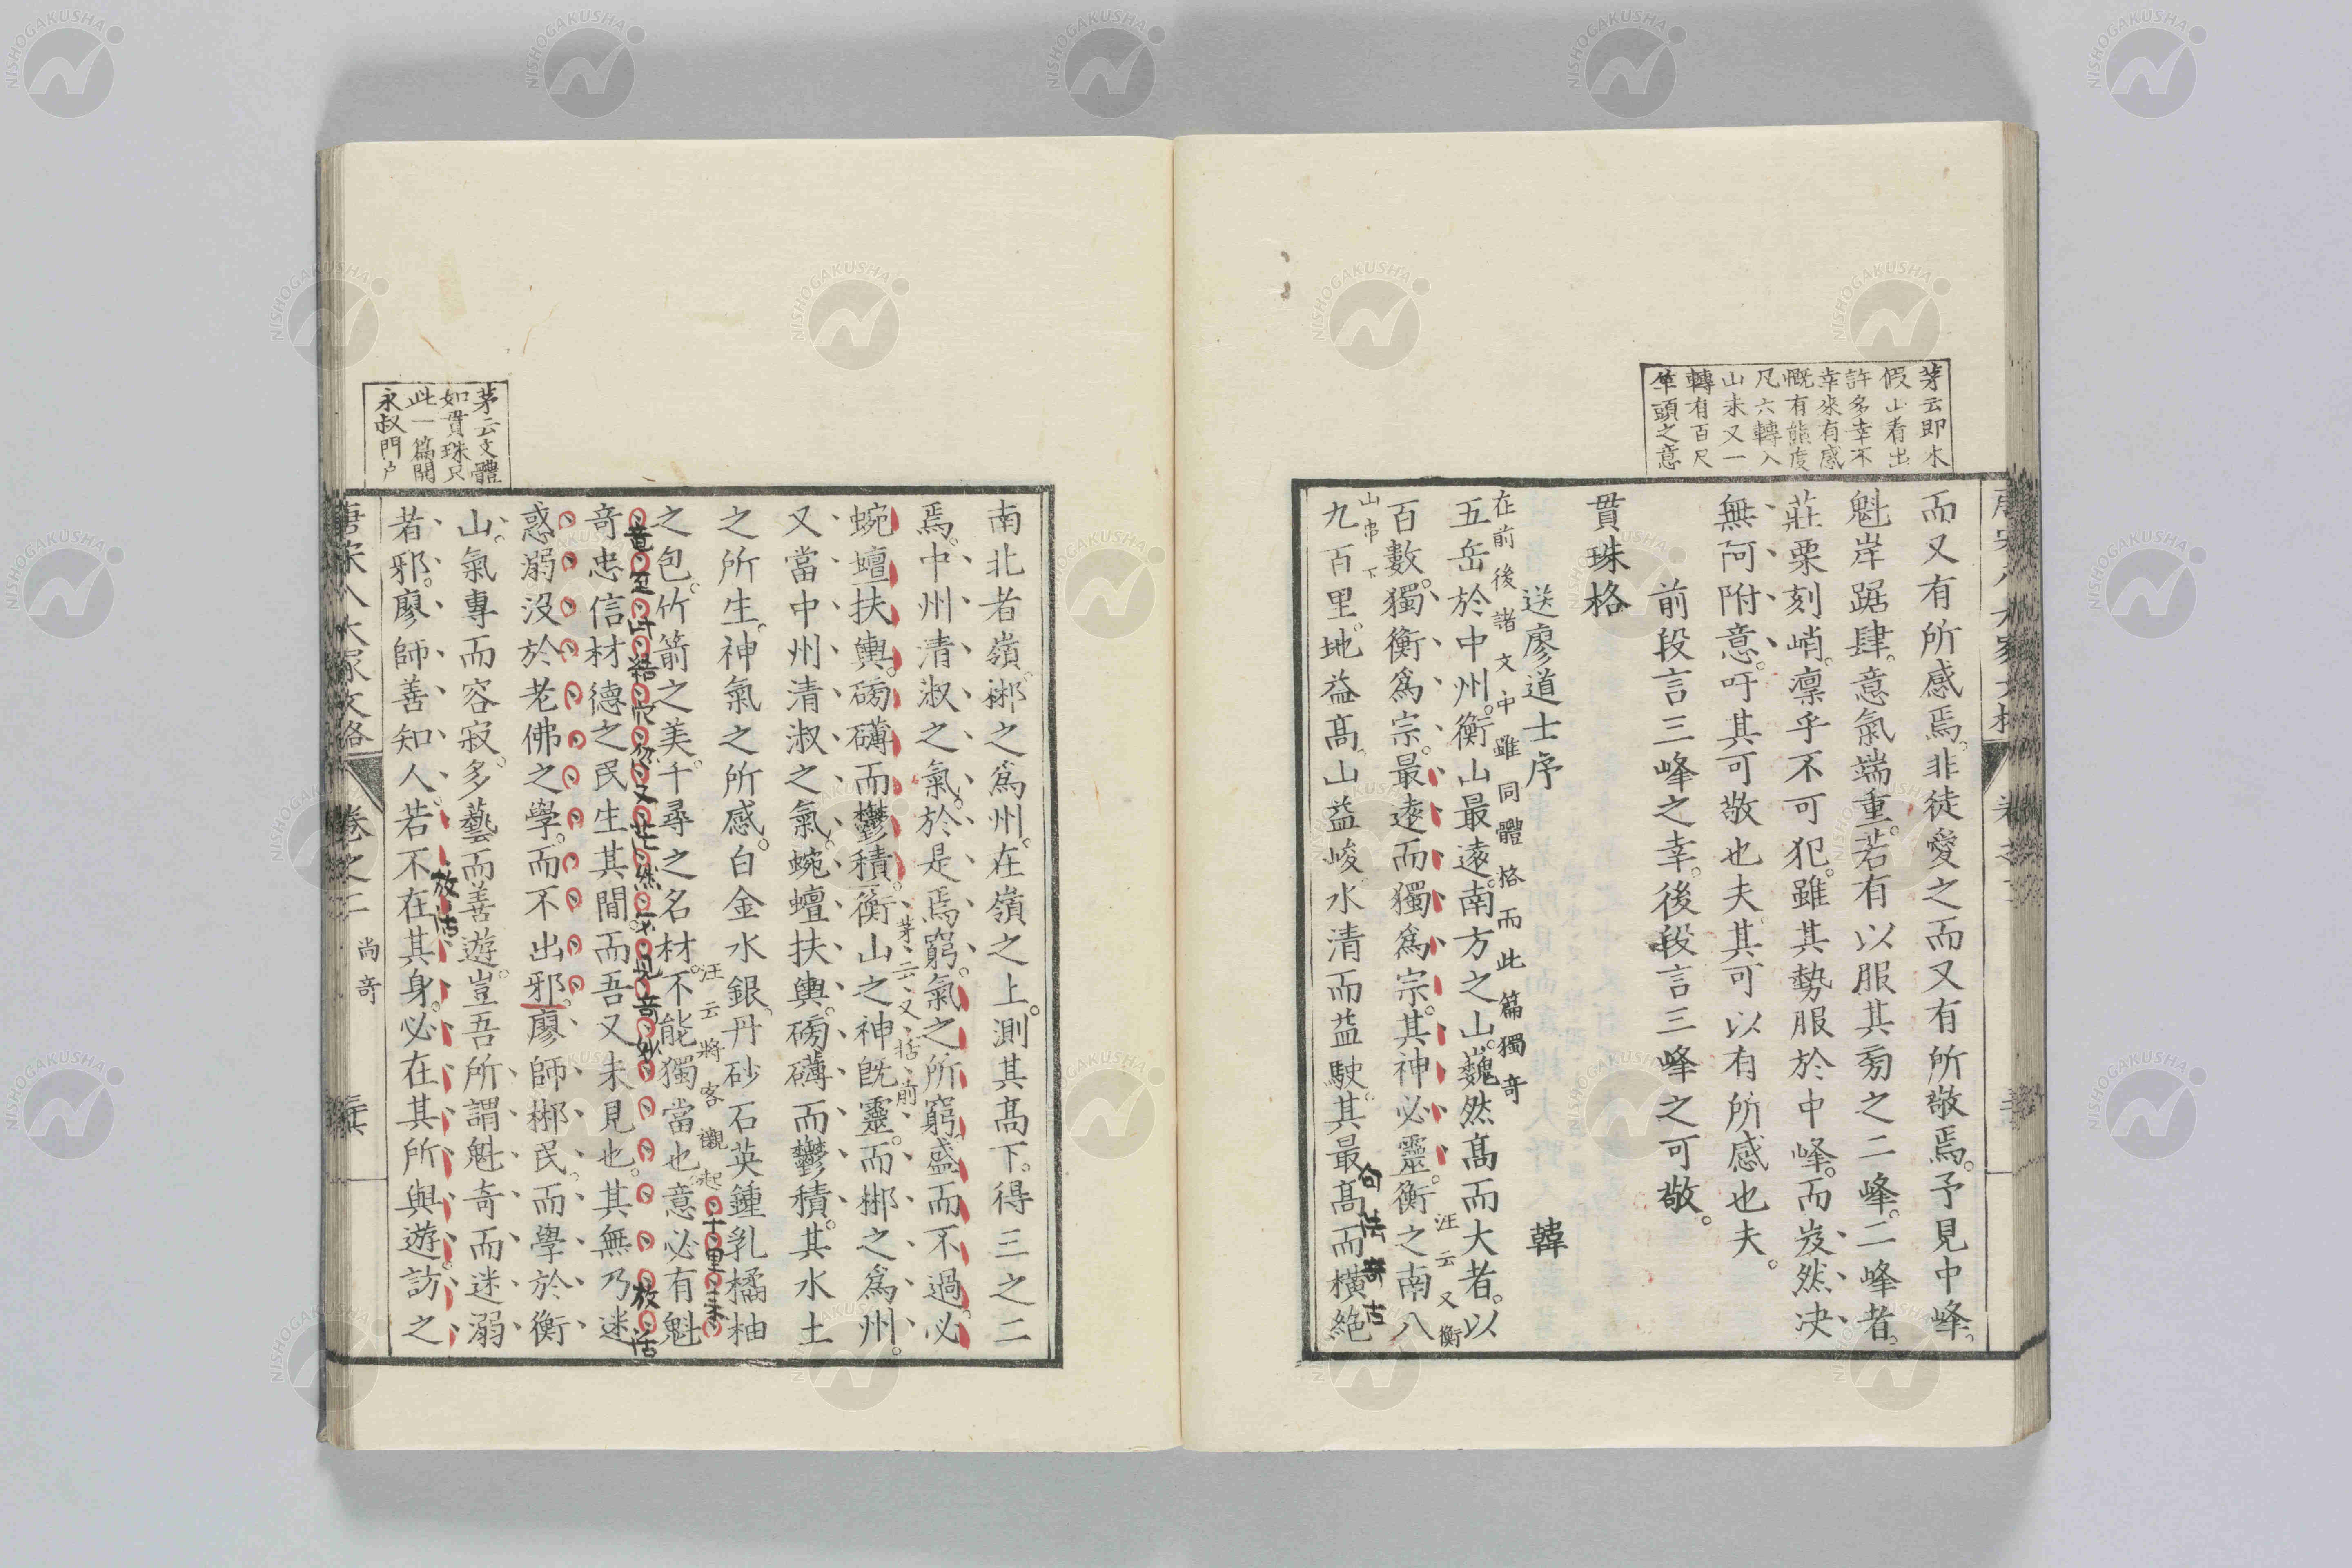 茅云即木
假山看出
許多幸不
幸來有感
慨有態度
凡六轉入
山末又一
轉有百尺
竿頭之意
而又有所感焉。非徒愛之而又有所敬焉。予見中峰。
魁岸踞肆。意氣端重。若有以服其旁之二峰。二峰者。
莊栗刻峭。凛乎不可犯。雖其勢服於中峰。而岌然决
無阿附意。吁其可敬也夫。其可以有所感也夫。
前段言三峰之幸。後段言三峰之可敬。
貫珠格
送廖道士序 韓
在前後諸文中雖同體格而此篇獨奇
五岳於中州。衡山最遠。南方之山。巍然高而大者。以
汪云又衡
山帶下
百數。獨衡爲宗。最遠而獨爲宗。其神必靈。衡之南八
句法奇古
九百里。地益高。山益峻。水清而益駛。其最高而橫絶
茅云文體
如貫珠只
此一篇開
永叔門戶
南北者嶺。郴之爲州。在嶺之上。測其高下。得三之二
焉。中州清淑之氣。於是焉窮。氣之所窮。盛而不過。必
茅云又括前
蜿蟺扶輿。磅礴而鬱積。衡山之神既靈。而郴之爲州。
又當中州清淑之氣。蜿蟺扶輿。磅礴而鬱積。其水土
之所生。神氣之所感。白金水銀。丹砂石英鍾乳橘柚
汪云將客襯起
十里來
之包。竹箭之美。千尋之名材。不能獨當也。意必有魁
龍至此
忽又茫然不見奇妙
放活
奇忠信材德之民生其間。而吾又未見也。其無乃迷
惑溺沒於老佛之學。而不出邪。廖師郴民。而學於衡
山。氣專而容寂。多藝而善遊。豈吾所謂魁奇而迷溺
放活
者邪。廖師善知人。若不在其身。必在其所與遊。訪之
唐宋八大家文格
卷之二
尚奇